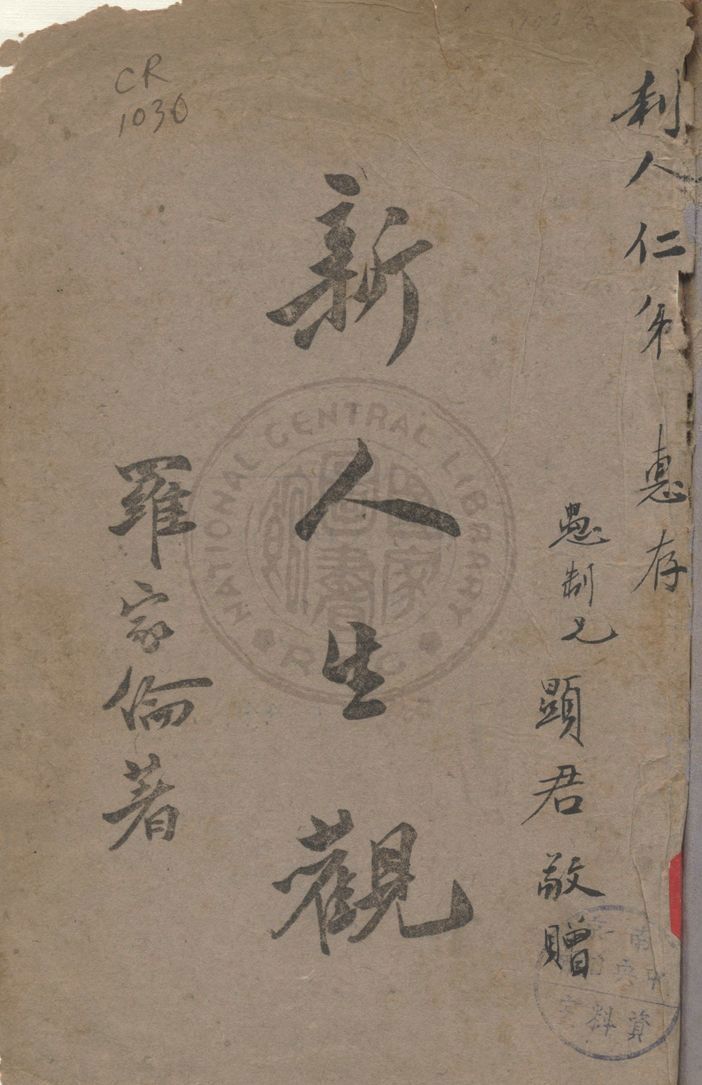 CR
1030
利人仁弟 惠存
愚制兄 顯君敬贈
新人生觀
羅家倫著
NATIONAL CENTRAL LIBRARY
R.O.C
國家圖書館
資料